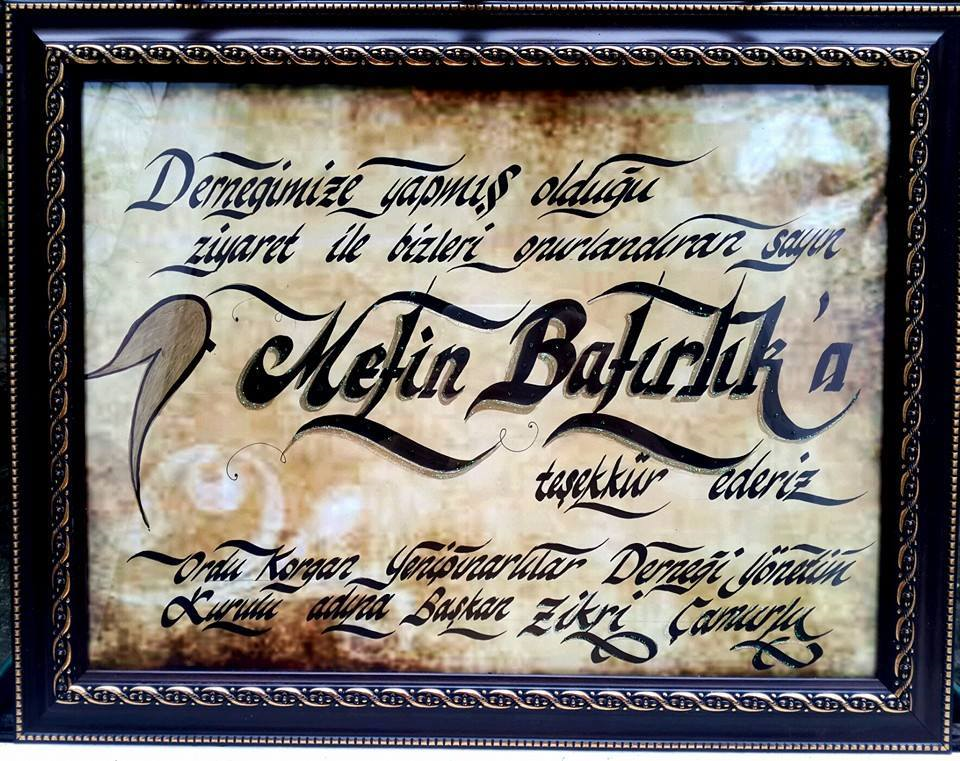 Derneğimize yapmış olduğu
ziyaret ile bizleri onurlandıran sayın
Metin Batırlık'a
teşekkür ederiz
Ordu Korgan Yenipınarlılar Derneği Yönetim
Kurulu adına Başkan Zikri Çamurlu